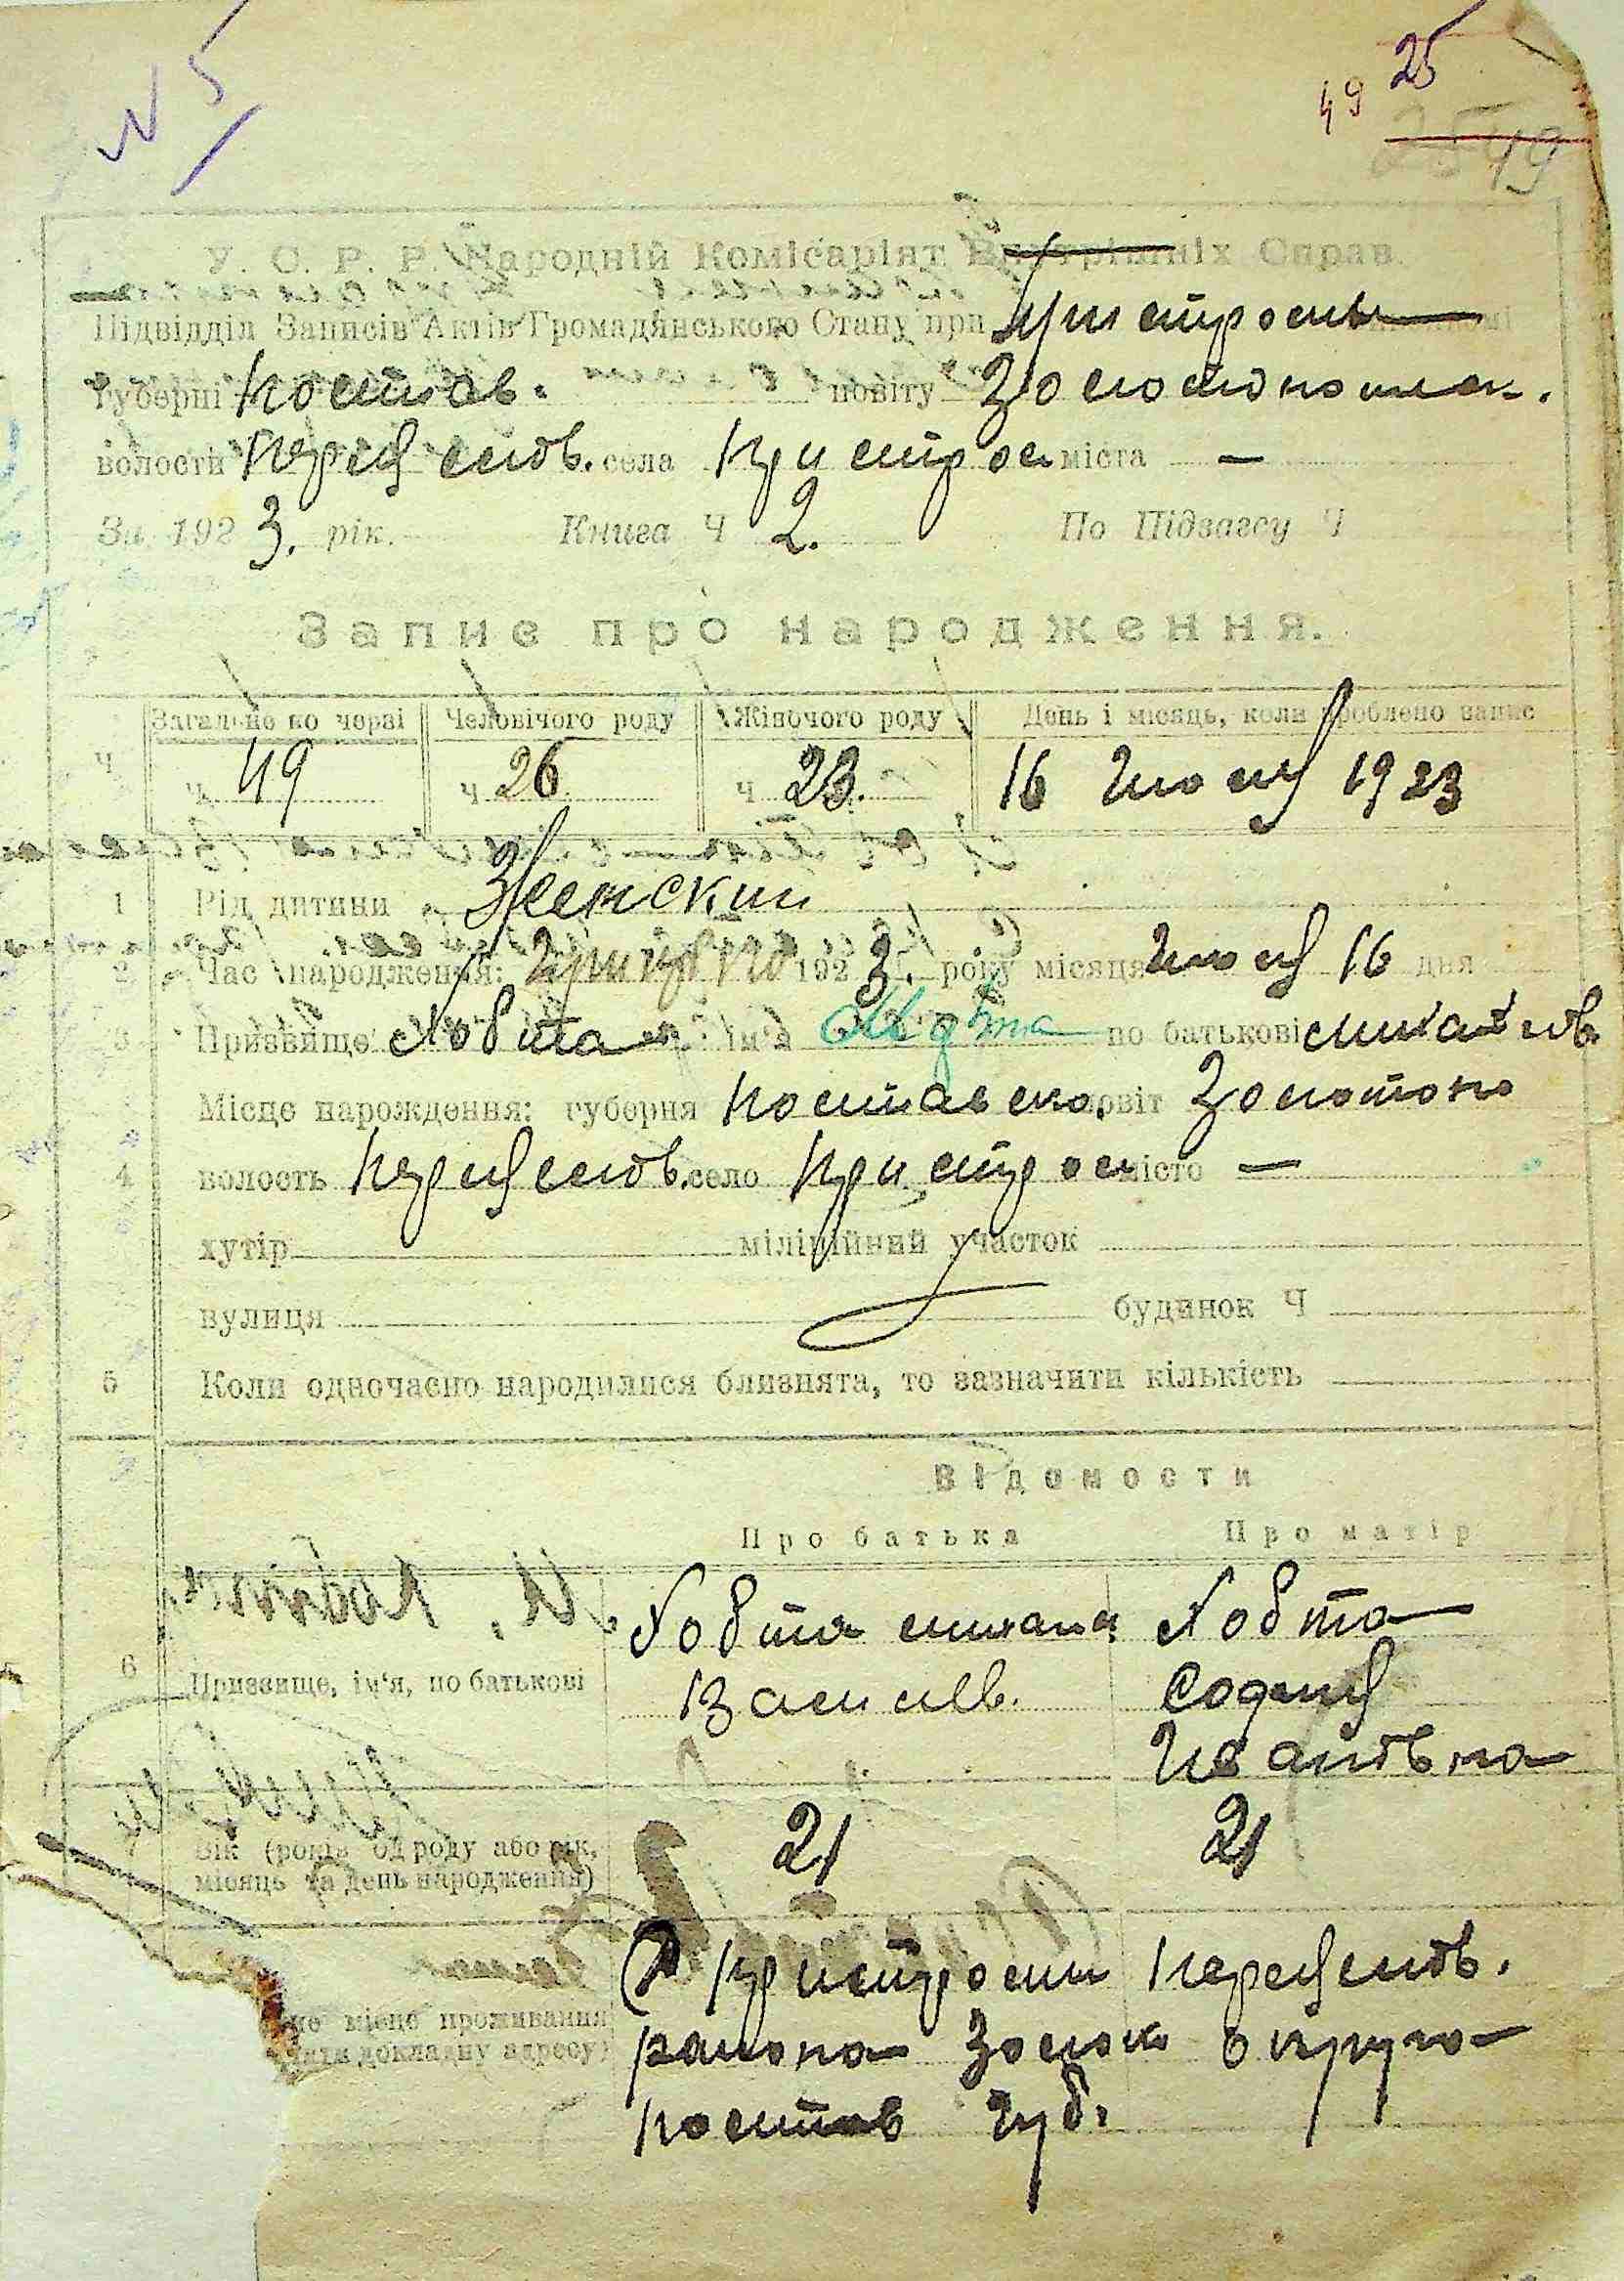 N 5
49 25
2549
У. С. Р. Р. Народній Комісаріят Внутрішніх Справ
Підвідділ Записів Актів Громадянського Стану при
губерні Полтав. повіту Золотонош.
волости села Пристром міста —
За 1923. рік. Книга Ч 2. По Підзагсу Ч
Запис про народження.
Загальне по черзі Человічого роду Жіночого роду День і місяць, коли зроблено запис
Ч ч. 49 ч 26 ч 23. 16 1923
1 Рід дитини Женский
2 Час народження: 1923 року місяця 16 дня
3 Призвище Ховта ім'я по батькові
Місце народження: губерня Полтавско повіт Золотоно
4 волость село Пристром місто —
хутір міліційний участок
вулиця будинок Ч
5 Коли одночасно народилися близнята, то зазначити кількість
Відомости
Про батька Про матір
Ховта Ховта
6 Призвище, ім'я, по батькові Василь. София
Ивановна
Вік (років од роду або рік, 21 21
місяць та день народження)
Пристроми
місце проживання
докладну адресу) района Золот округа
Полтав губ.